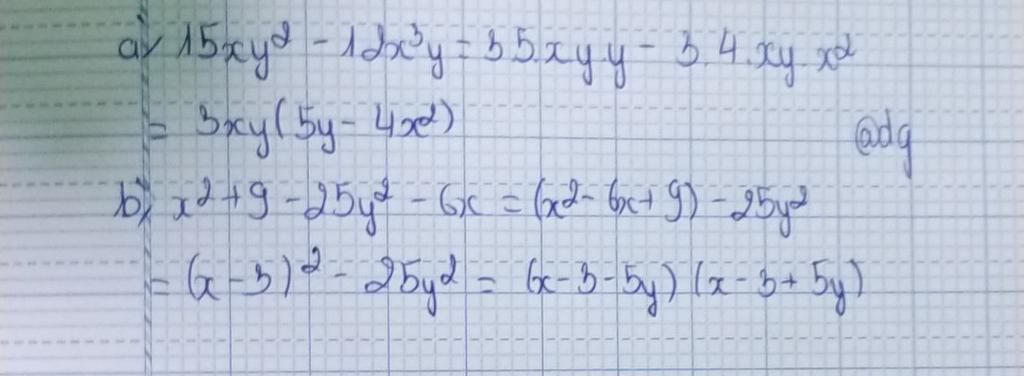 a) 15xy² - 12x³y = 3.5.xy.y - 3.4.xy.x²
= 3xy(5y - 4x²)
@dg
b) x² + 9 - 25y² - 6x = (x² - 6x + 9) - 25y²
= (x - 3)² - 25y² = (x - 3 - 5y) (x - 3 + 5y)